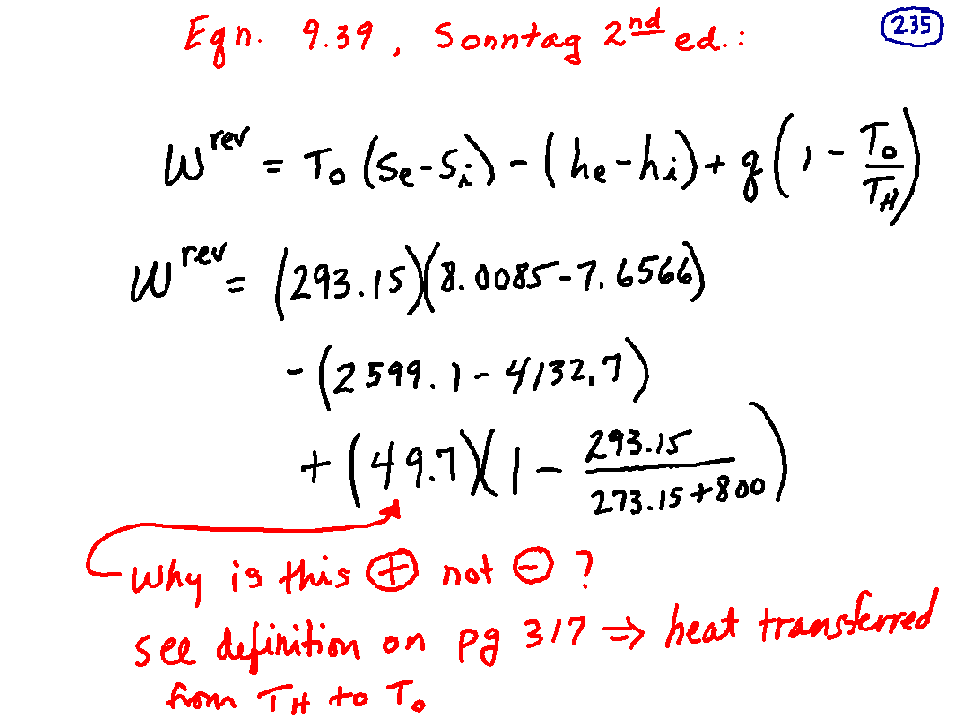 Eqn. 9.39, Sonntag 2nd ed.:
235
w^rev = T₀ (Se-Si) - (he-hi) + q(1 - T₀/T_H)
w^rev = (293.15)(8.0085-7.6566)
-(2599.1-4132.7)
+ (49.7)(1 - 293.15/(273.15+800))
Why is this ⊕ not ⊖ ?
see definition on pg 317 ⇒ heat transferred
from T_H to T₀